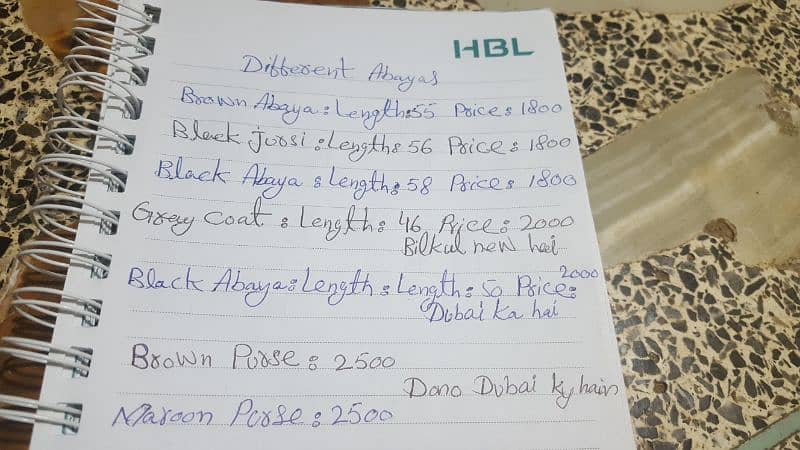 HBL
Different Abayas
Brown Abaya : Length : 55 Price : 1800
Black Jursi : Length : 56 Price : 1800
Black Abaya : Length : 58 Price : 1800
Grey Coat : Length : 46 Price : 2000
Bilkul new hai
Black Abaya : Length : Length : 50 Price : 2000
Dubai ka hai
Brown Purse : 2500
Dono Dubai ky hain
Maroon Purse : 2500